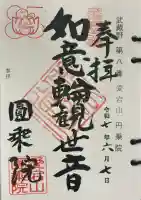 武蔵野 第八番 愛宕山 円乗院
奉拝
令和七年六月七日
如意輪観世音
圓乗院